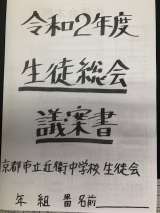 令和2年度
生徒総会
議案書
京都市立近衛中学校 生徒会
年 組 番 名前